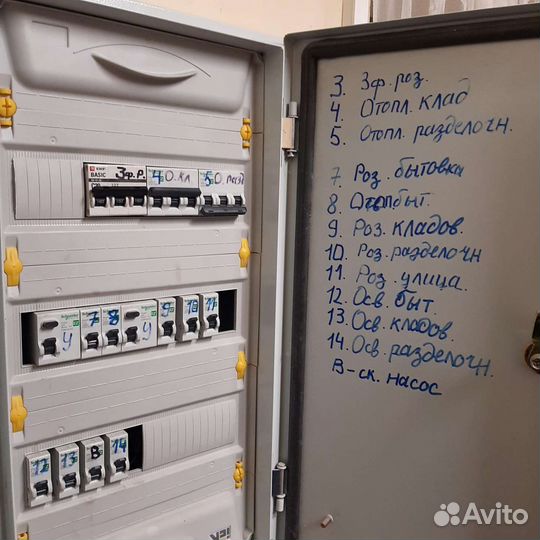 EKF
BASIC
3ф.Р.
4 О.кл
5 О. разд
C20
У 7 8 У 9 10 11
12 13 В 14
IEK
3. 3ф. роз.
4. Отопл. клад
5. Отопл. разделочн.
7. Роз. бытовка
8. Отопл быт.
9 Роз. кладов.
10. Роз. разделочн
11 Роз. улица.
12 Осв. быт
13. Осв. кладов.
14 Осв. разделочн.
В-ск. насос
Avito